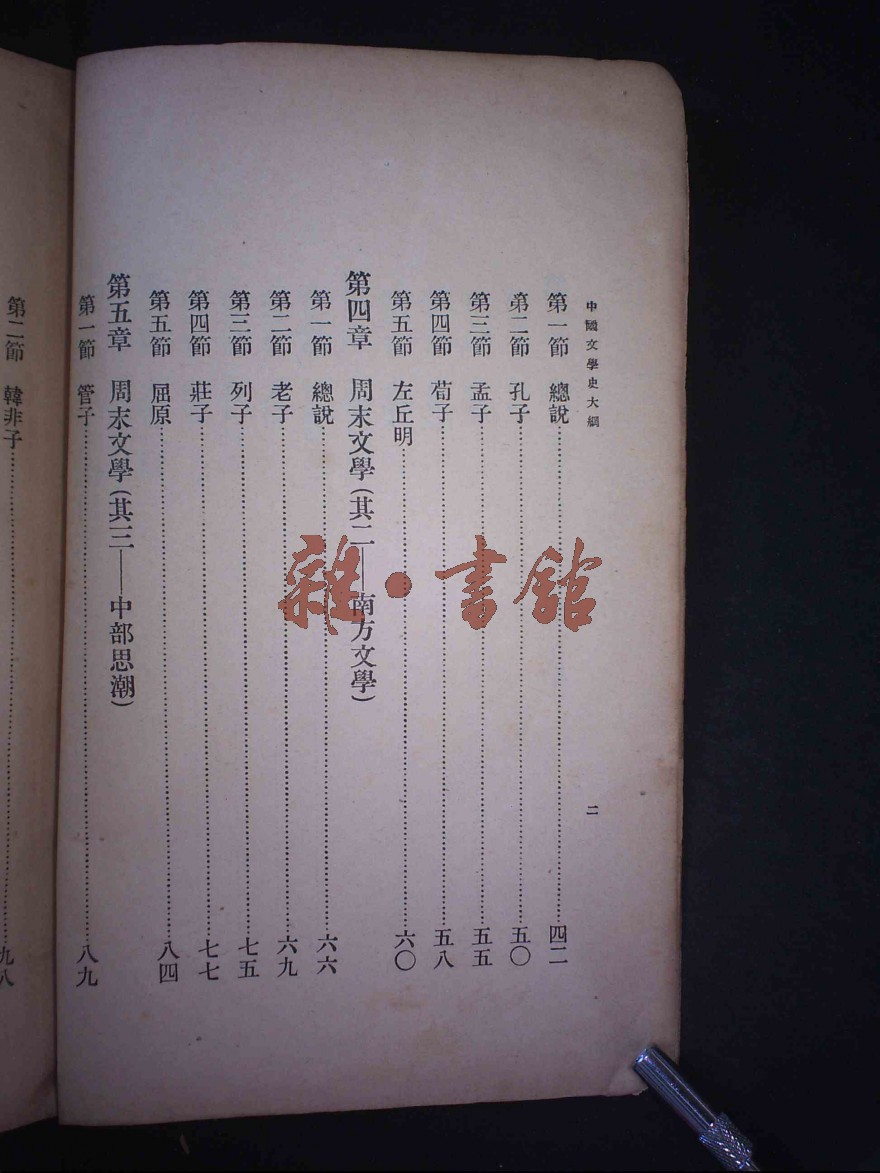 中國文學史大綱
二
第一節 總說……四二
第二節 孔子……五〇
第三節 孟子……五五
第四節 荀子……五八
第五節 左丘明……六〇
第四章 周末文學(其二——南方文學)
第一節 總說……六六
第二節 老子……六九
第三節 列子……七五
第四節 莊子……七七
第五節 屈原……八四
第五章 周末文學(其三——中部思潮)
第一節 管子……八九
第二節 韓非子……九八
雜·書館